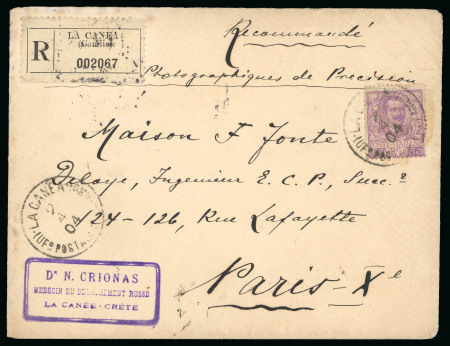 Recommandé
R
LA CANEA
(Candia)
002067
Photographiques de Precision
Maison F Jonte
Delaye, Ingenieur E. C. P., Succ.r
124-126, Rue Lafayette
Paris-Xe
LA CANEA
04
LA CANEA
04
Dr N. CRIONAS
MEDECIN DU DETACHEMENT RUSSE
LA CANEE-CRÈTE